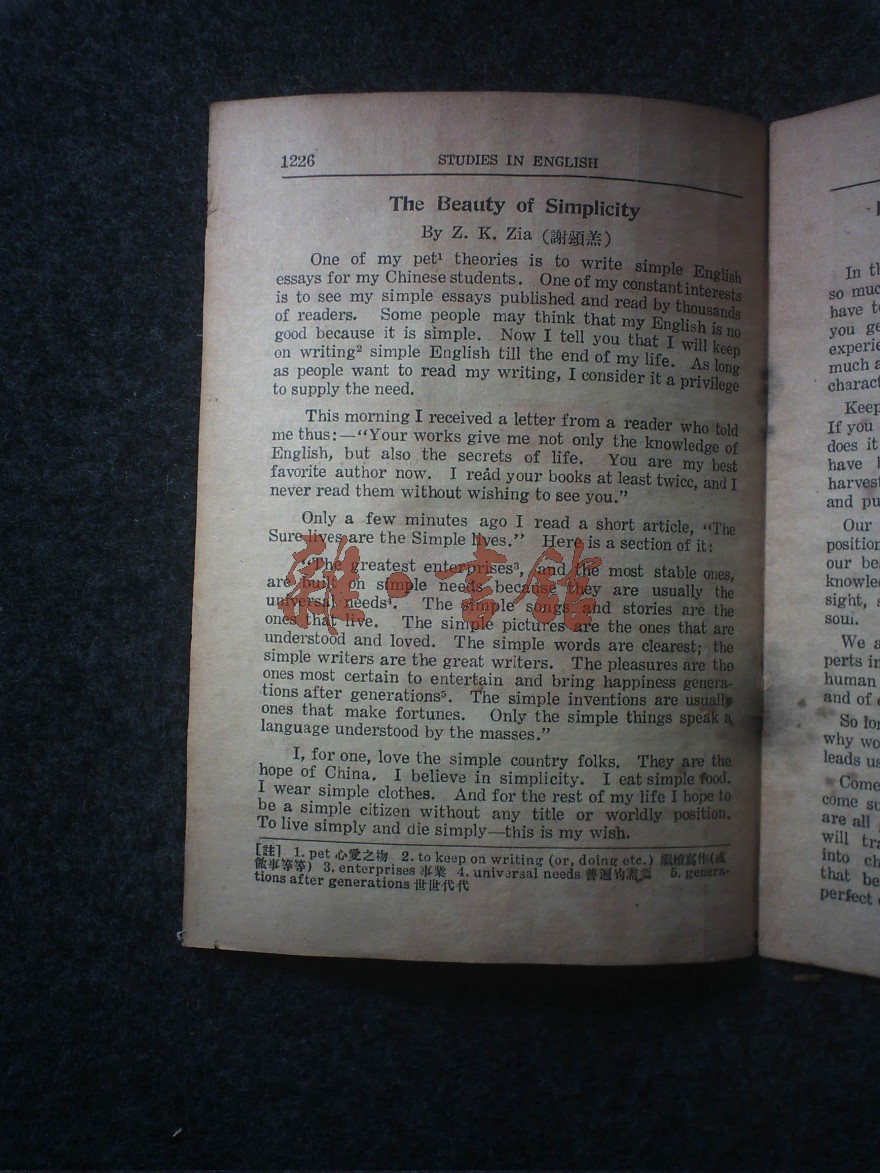 1226 STUDIES IN ENGLISH
The Beauty of Simplicity
By Z. K. Zia (謝頌羔)
One of my pet¹ theories is to write simple English
essays for my Chinese students. One of my constant interests
is to see my simple essays published and read by thousands
of readers. Some people may think that my English is no
good because it is simple. Now I tell you that I will keep
on writing² simple English till the end of my life. As long
as people want to read my writing, I consider it a privilege
to supply the need.
This morning I received a letter from a reader who told
me thus:—"Your works give me not only the knowledge of
English, but also the secrets of life. You are my best
favorite author now. I read your books at least twice, and I
never read them without wishing to see you."
Only a few minutes ago I read a short article, "The
Sure lives are the Simple lives." Here is a section of it:
"The greatest enterprises³, and the most stable ones,
are built on simple needs because they are usually the
universal needs⁴. The simple songs and stories are the
ones that live. The simple pictures are the ones that are
understood and loved. The simple words are clearest; the
simple writers are the great writers. The pleasures are the
ones most certain to entertain and bring happiness genera-
tions after generations⁵. The simple inventions are usually
ones that make fortunes. Only the simple things speak a
language understood by the masses."
I, for one, love the simple country folks. They are the
hope of China. I believe in simplicity. I eat simple food.
I wear simple clothes. And for the rest of my life I hope to
be a simple citizen without any title or worldly position.
To live simply and die simply—this is my wish.
[註] 1. pet 心愛之物 2. to keep on writing (or, doing etc.) 繼續寫作(或
做事等等) 3. enterprises 事業 4. universal needs 普遍的需要 5. genera-
tions after generations 世世代代
雜·書館
In
so
have
you
much
Keep
If you
does it
have
and
Our
position
our
sight,
We
human
and of
why
leads us
Come
come
are all
will
into
that
perfect